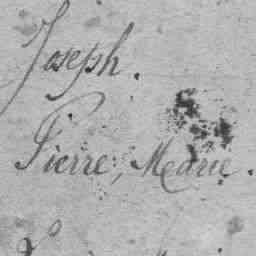 Joseph.
Pierre, Marie.